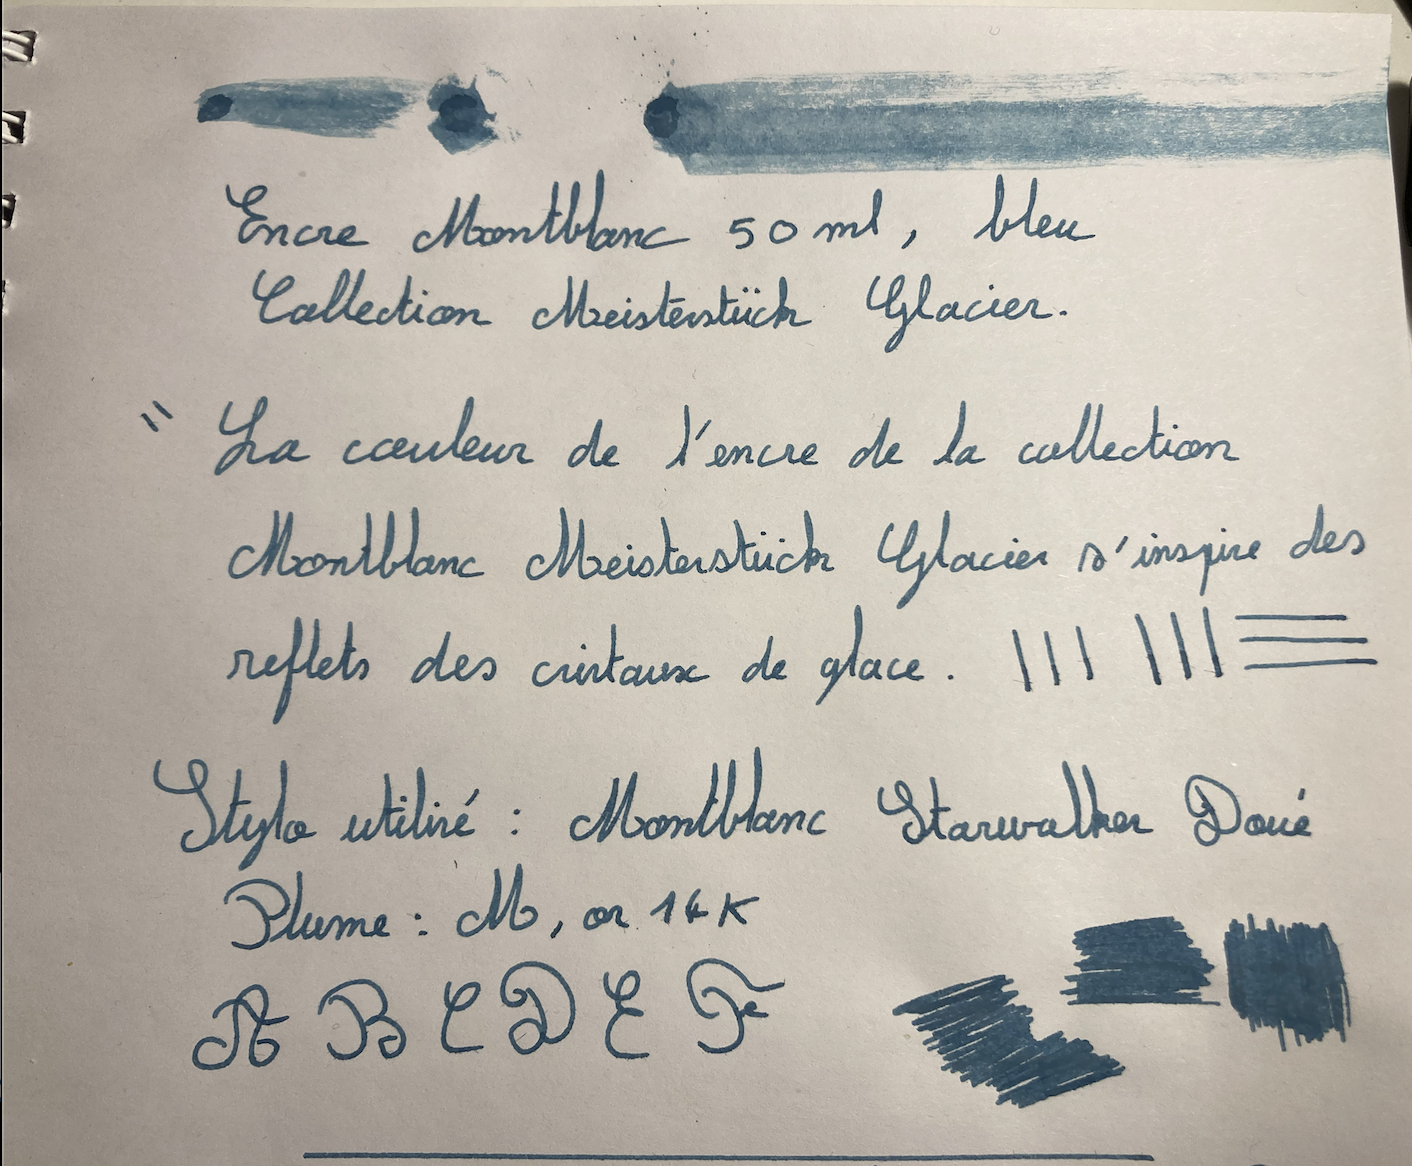 Encre Montblanc 50 ml, bleu
Collection Meisterstück Glacier.
" La couleur de l'encre de la collection
Montblanc Meisterstück Glacier s'inspire des
reflets des cristaux de glace.
Stylo utilisé : Montblanc Starwalker Doué
Plume : M, or 14K
A B C D E F